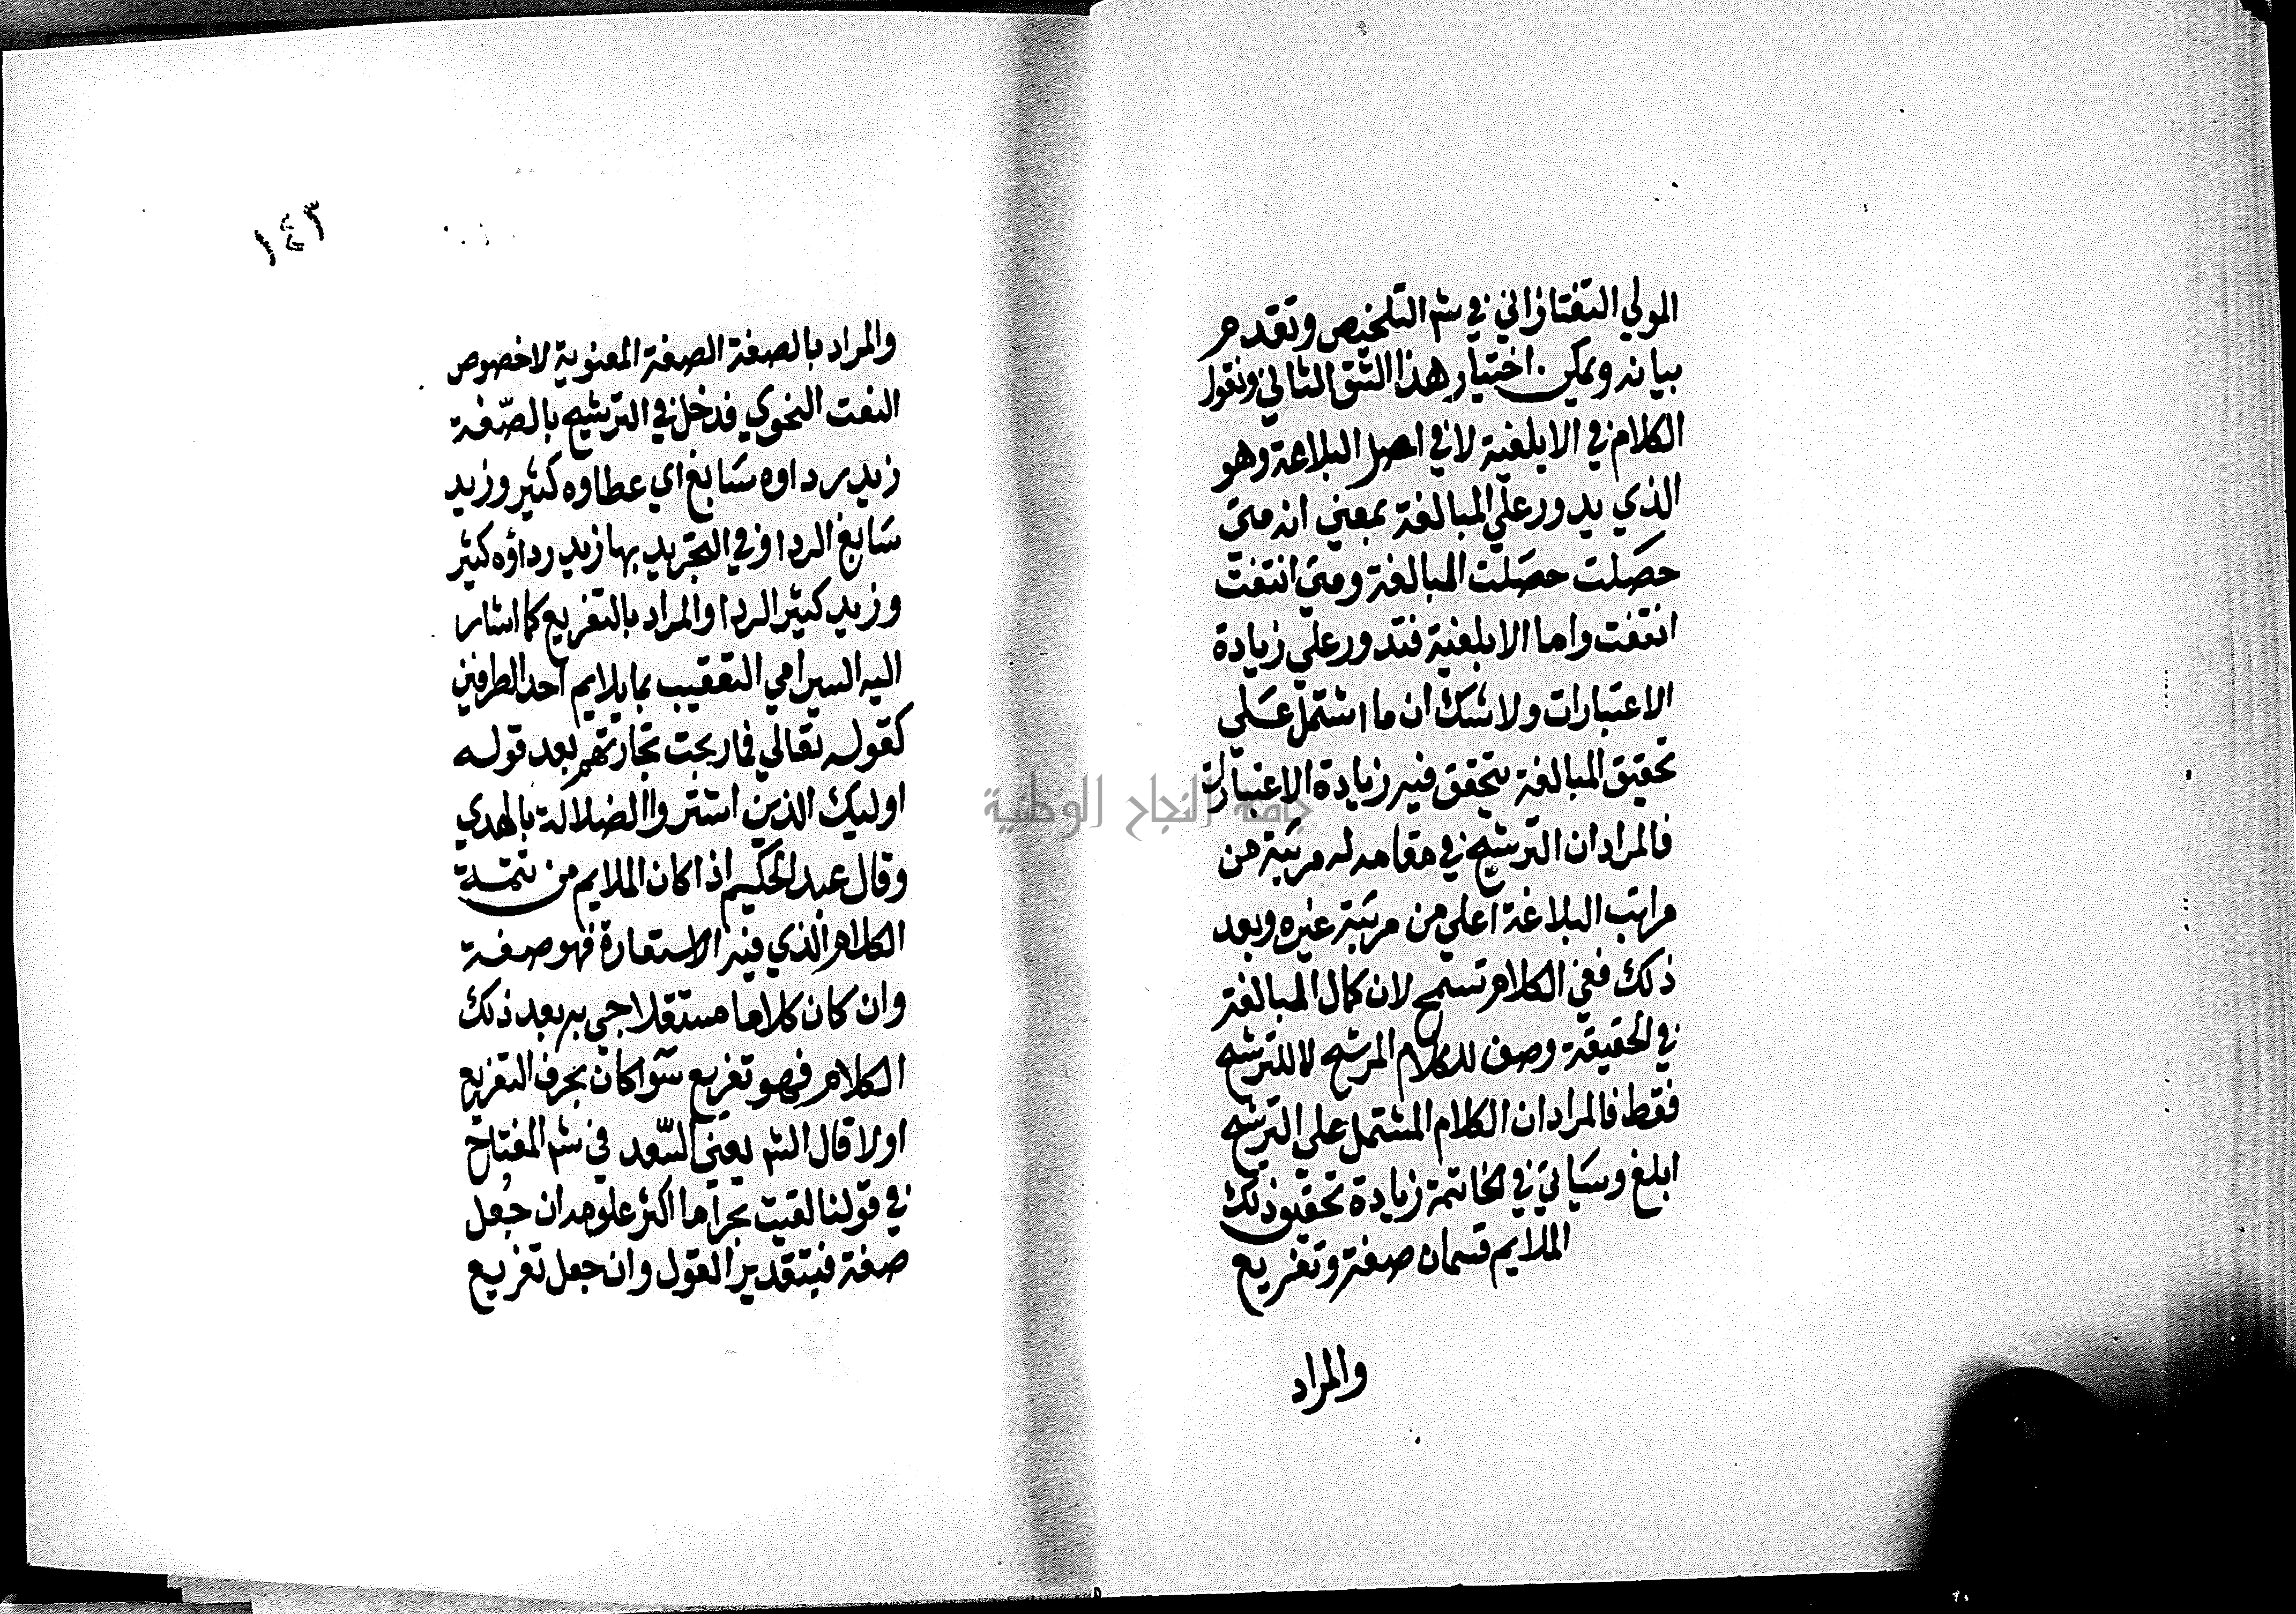 المولي التفتازاني في شم التلخيص وتقدم
بيانه ويمكن اختيار هذا الشق الثاني ونقول
الكلام في الابلغية لا في اصل البلاغة وهو
الذي يدور علي المبالغة بمعني انه متي
حصلت حصلت المبالغة ومتي انتفت
انتفت واما الابلغية فتدور علي زيادة
الاعتبارات ولا شك ان ما اشتمل علي
تحقيق المبالغة يتحقق فيه زيادة الاعتبارات
فالمراد ان الترشيح في مقامه له مرتبة من
مراتب البلاغة اعلي من مرتبة غيره وبعد
ذلك ففي الكلام تسمح لان كمال المبالغة
في الحقيقة وصف للكلام المرشح لا للترشيح
فقط فالمراد ان الكلام المشتمل علي الترشيح
ابلغ وسياتي في الخاتمة زيادة تحقيق ذلك
الملايم قسمان صفة وتفريع
والمراد
١٤٣
والمراد بالصفة الصفة المعنوية لا خصوص
النعت النحوي فدخل في الترشيح بالصّفة
زيد رداوه سَابغ اي عطاوه كثير وزيد
سَابغ الردا وفي التجريد بها زيد رداؤه كثير
وزيد كثير الردا والمراد بالتفريع كما اشار
اليه السيرامي التعقيب بما يلايم احد الطرفين
كقوله تعالي فما ربحت تجارتهم بعد قوله
اوليك الذين اشتروا الضلالة بالهدي
وقال عبد الحكيم اذا كان الملايم من تتمة
الكلام الذي فيه الاستعارة فهو صفة
وان كان كلاما مستقلا جي به بعد ذلك
الكلام فهو تفريع سَوا كان بحرف التفريع
اولا قال الشم يعني السّعد في شم المفتاح
في قولنا لقيت بحرا ما اكثر علومه ان جُعل
صفة فبتقدير القول وان جعل تفريع
جامعة النجاح الوطنية